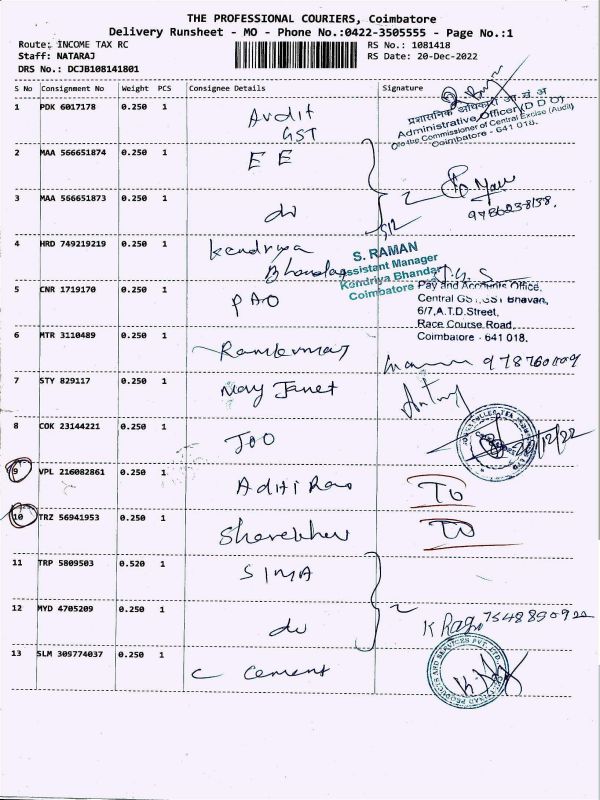 THE PROFESSIONAL COURIERS, Coimbatore
Delivery Runsheet - MO - Phone No.:0422-3505555 - Page No.:1
Route: INCOME TAX RC
RS No.: 1081418
Staff: NATARAJ
RS Date: 20-Dec-2022
DRS No.: DCJB108141801
S No Consignment No Weight PCS Consignee Details Signature
1 PDK 6017178 0.250 1 Audit
GST
प्रशासनिक अधिकारी आ. सं. अ
Administrative Officer (D D O)
O/o the Commissioner of Central Excise (Audit)
Coimbatore - 641 018.
2 MAA 566651874 0.250 1 E E
3 MAA 566651873 0.250 1 do
4 HRD 749219219 0.250 1 Kendriya
Bhandar
S. RAMAN
Assistant Manager
Kendriya Bhandar
Coimbatore
5 CNR 1719170 0.250 1 PAO
Pay and Accounts Office,
Central GST, GST Bhavan,
6/7, A.T.D. Street,
Race Course Road,
Coimbatore - 641 018.
6 MTR 3110489 0.250 1
7 STY 829117 0.250 1 May Janet
8 COK 23144221 0.250 1 JOO
20/12/22
9 VPL 216082861 0.250 1 Aditi Rao
10 TRZ 56941953 0.250 1
11 TRP 5809503 0.520 1 SIMA
12 MYD 4705209 0.250 1 do
2
7548890922
13 SLM 309774037 0.250 1 C Cement